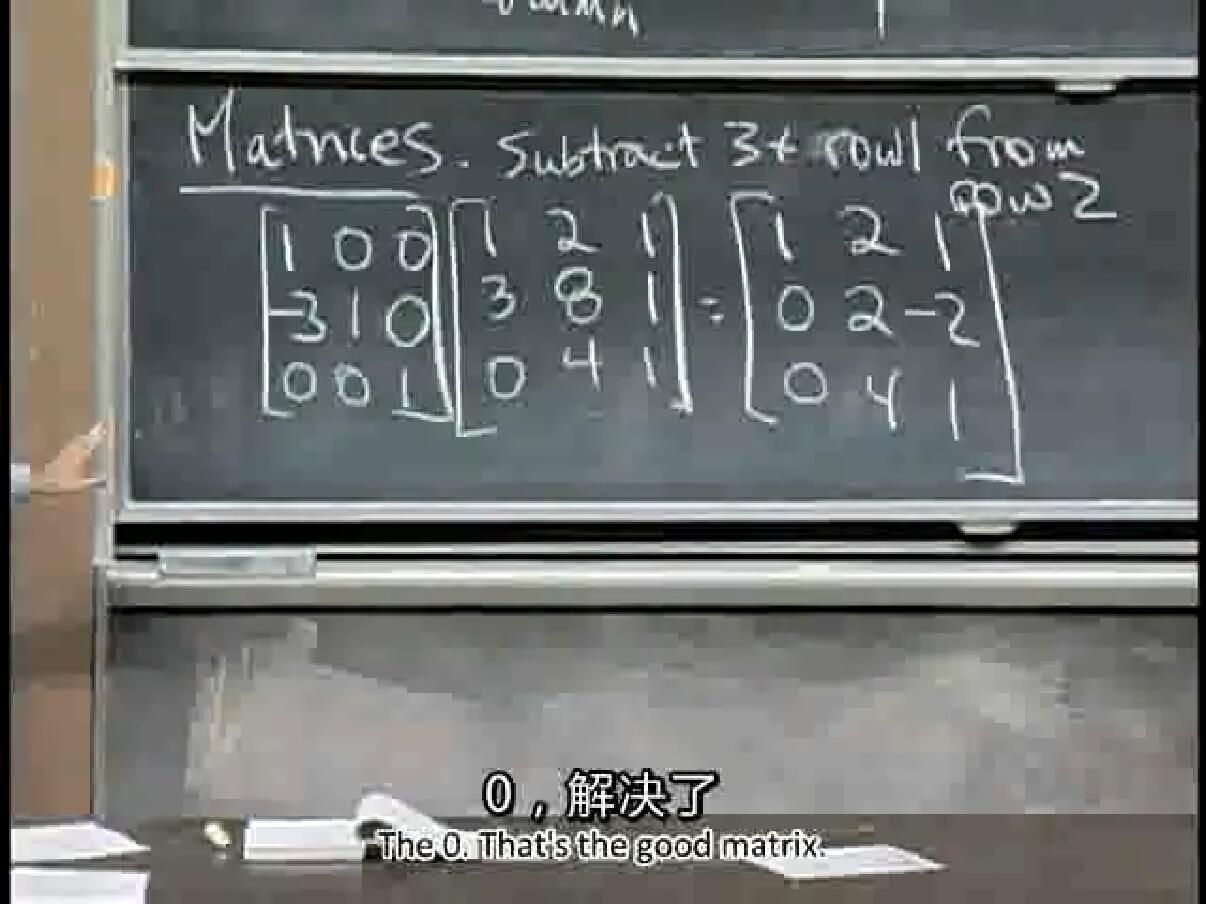 Matrices. Subtract 3× row1 from
row 2
[1 0 0] [1 2 1] [1 2 1]
[-3 1 0] [3 8 1] = [0 2 -2]
[0 0 1] [0 4 1] [0 4 1]
0，解决了
The 0. That's the good matrix.